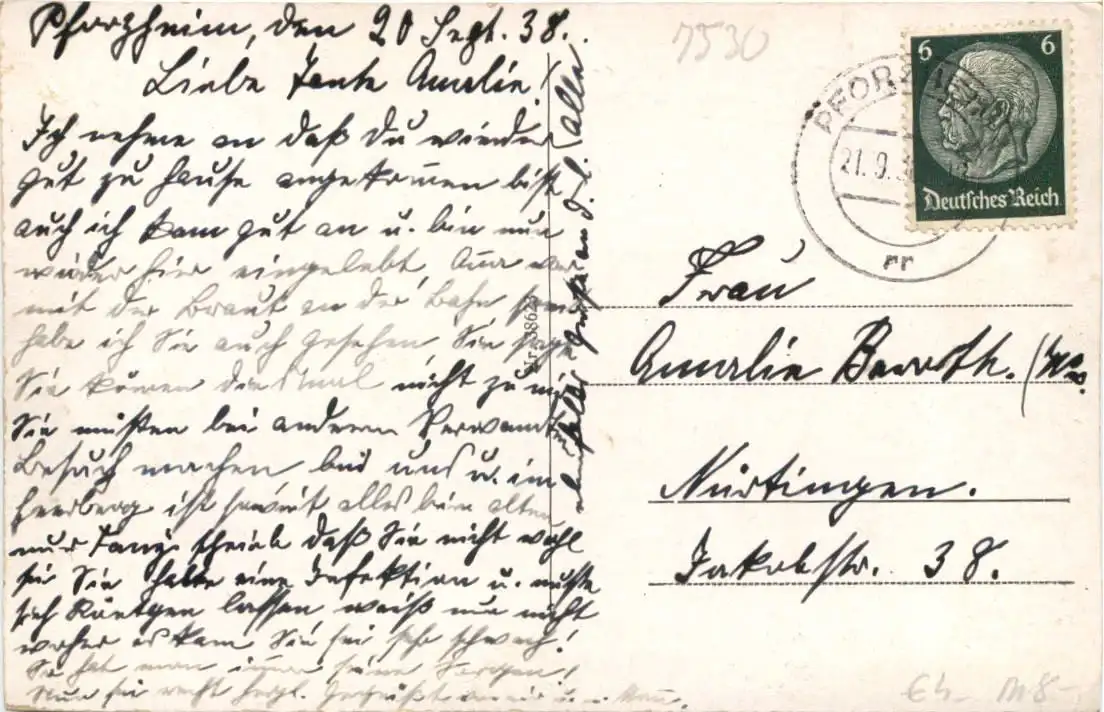 Pforzheim, den 20 Sept. 38.
Liebe Tante Amalie!
Ich nehme an daß Du wieder
gut zu Hause angekommen bist
auch ich kam gut an u. bin nun
wieder hier eingelebt,
mit der Braut an der Bahn
habe ich Sie auch gesehen, Sie sagte
Sie können diesmal nicht zu mir
Sie müßten bei anderen Verwandten
Besuch machen, bei uns u. im
ist soweit alles beim alten
nur schrieb daß Sie nicht wohl
sei Sie hatte eine Infektion u. mußte
sich Röntgen lassen weiß nun nicht
woher es kam, Sie sei sehr schwach!
So hat man immer seine Sorgen!
Nun sei recht herzl. gegrüßt von mir u.
Grüße an
7530
PFORZHEIM
21.9.3
rr
6 6
Deutsches Reich
Nr. 3862
Frau
Amalie
Nürtingen.
Jakobstr. 38.